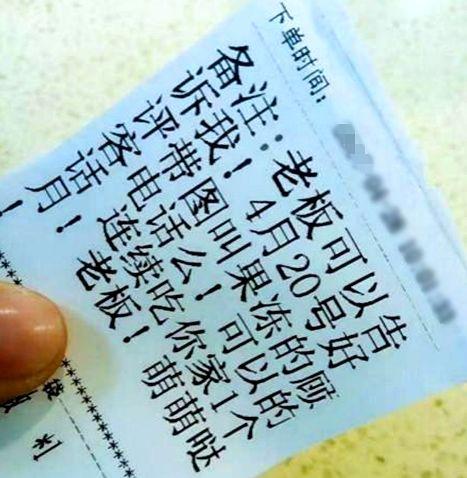 下单时间：
备注：老板可以告
诉我！4月20号好
评带图叫果冻的顾
客电话么！可以的
话连续吃你家1个
月！老板！萌萌哒
！